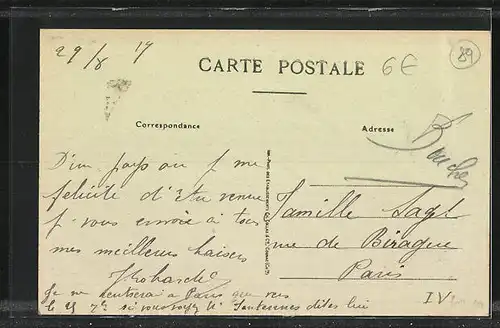 29/8 17
CARTE POSTALE
6€
89
Correspondance
Adresse
D'un pays où je me
félicite d'être venue
je vous envoie à tous
mes meilleurs baisers
Je ne rentrerai à Paris que vers
le 25 7re si vous voyez dites lui
Famille Sagl
rue de Birague
Paris
IV